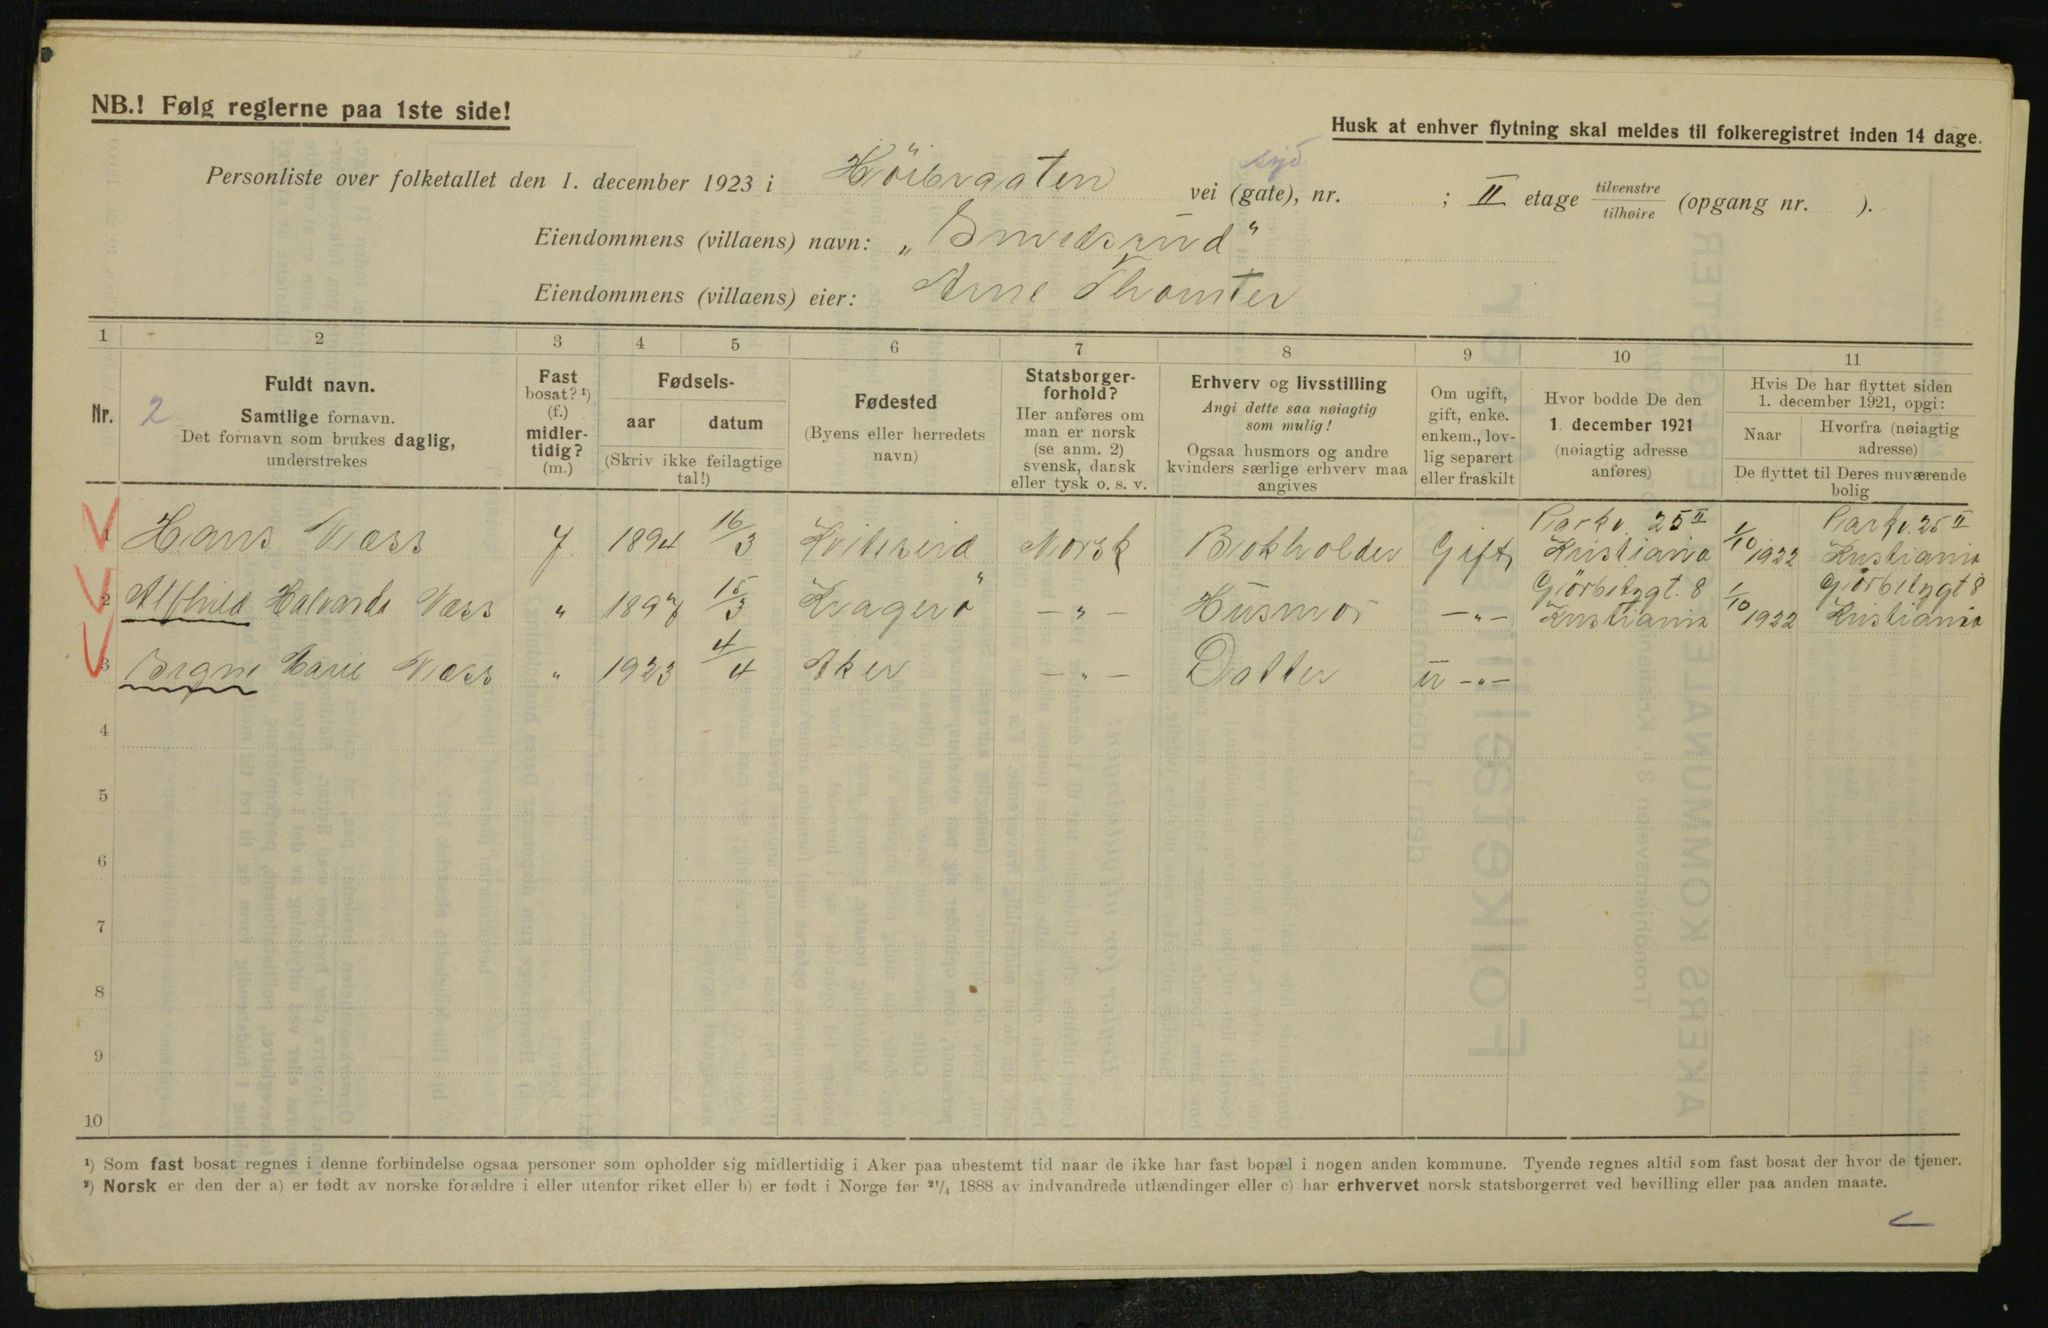 NB.! Følg reglerne paa 1ste side!
Husk at enhver flytning skal meldes til folkeregistret inden 14 dage.
syd
Personliste over folketallet den 1. december 1923 i Höibraaten vei (gate), nr. ; II etage tilvenstre tilhøire (opgang nr. ).
Eiendommens (villaens) navn: „Smedsrud"
Eiendommens (villaens) eier: Arne Thomter
1 2 3 4 5 6 7 8 9 10 11
Nr.
2
Fuldt navn.
Samtlige fornavn.
Det fornavn som brukes daglig,
understrekes
Fast
bosat? ¹)
(f.)
midler-
tidig?
(m.)
Fødsels-
aar datum
(Skriv ikke feilagtige
tal!)
Fødested
(Byens eller herredets
navn)
Statsborger-
forhold?
Her anføres om
man er norsk
(se anm. 2)
svensk, dansk
eller tysk o. s. v.
Erhverv og livsstilling
Angi dette saa nøiagtig
som mulig!
Ogsaa husmors og andre
kvinders særlige erhverv maa
angives
Om ugift,
gift, enke.
enkem., lov-
lig separert
eller fraskilt
Hvor bodde De den
1. december 1921
(nøiagtig adresse
anføres)
Hvis De har flyttet siden
1. december 1921, opgi:
Naar
Hvorfra (nøiagtig
adresse)
De flyttet til Deres nuværende
bolig
Parkv. 25 II Parkv. 25 II
1 Hans Næss f. 1894 16/3 Kviteseid Norsk Bokholder Gift Kristiania 1/10 1922 Kristiania
Gjörbitzgt. 8 Gjörbitzgt 8
2 Alfhild Halvarda Næss " 1897 15/3 Kragerö — " — Husmor — " — Kristiania 1/10 1922 Kristiania
3 Signe Marie Næss " 1923 4/4 Aker — " — Datter u — " —
4
5
6
7
8
9
10
¹) Som fast bosat regnes i denne forbindelse ogsaa personer som opholder sig midlertidig i Aker paa ubestemt tid naar de ikke har fast bopæl i nogen anden kommune. Tyende regnes altid som fast bosat der hvor de tjener.
²) Norsk er den der a) er født av norske forældre i eller utenfor riket eller b) er født i Norge før ²¹/₄ 1888 av indvandrede utlændinger eller c) har erhvervet norsk statsborgerret ved bevilling eller paa anden maate.